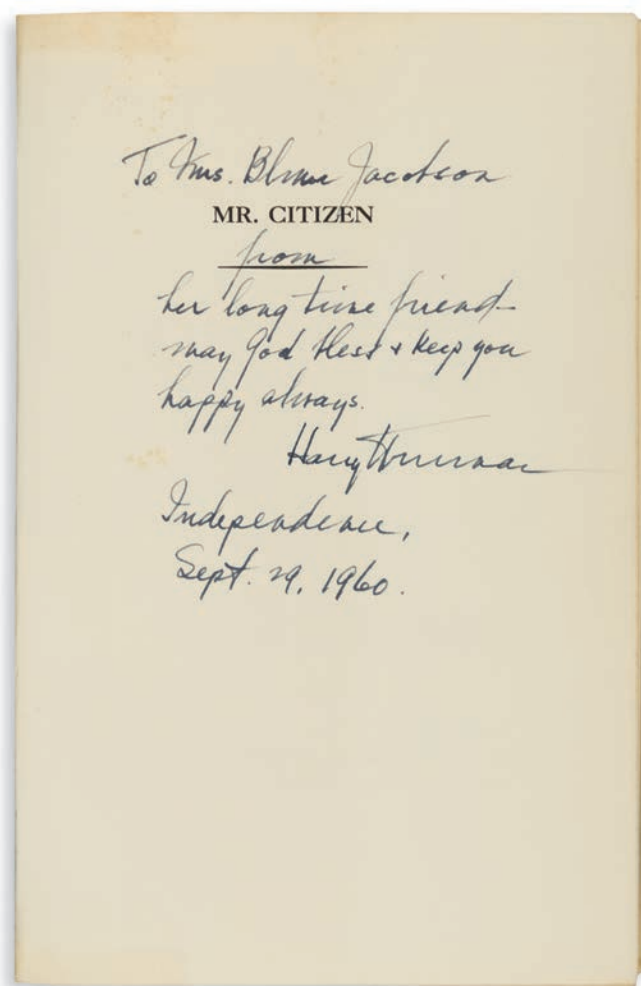 To Mrs. Bluma Jacobson
MR. CITIZEN
from
her long time friend
may God bless & keep you
happy always.
Harry Truman
Independence,
Sept. 29, 1960.